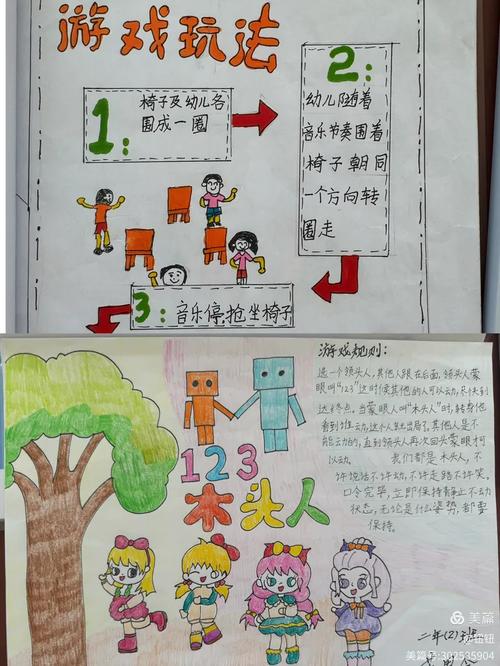 游戏玩法
1:
椅子及幼儿各
围成一圈
2:
幼儿随着
音乐节奏围着
椅子朝同
一个方向转
圈走
3:音乐停,抢坐椅子
游戏规则:
选一个领头人,其他人跟在后面,领头人蒙
眼叫"123"这时候其他的人可以动,尽快到
达终点,当蒙眼人叫"木头人"时,转身看
到谁动,这个人就出局了,其他人是不
能动的,直到领头人再次回头蒙眼才可
以动。 我们都是木头人,不
许说话不许动,不许走路不许笑。
口令完毕,立即保持静止不动
状态,无论是什么姿势,都要
保持。
123
木头人
二年(2)班
美篇
美篇号:302535904